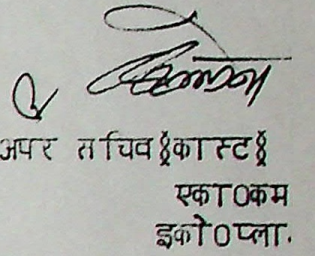 अपर सचिव §कास्ट§
एका0कम
इको0प्ला.